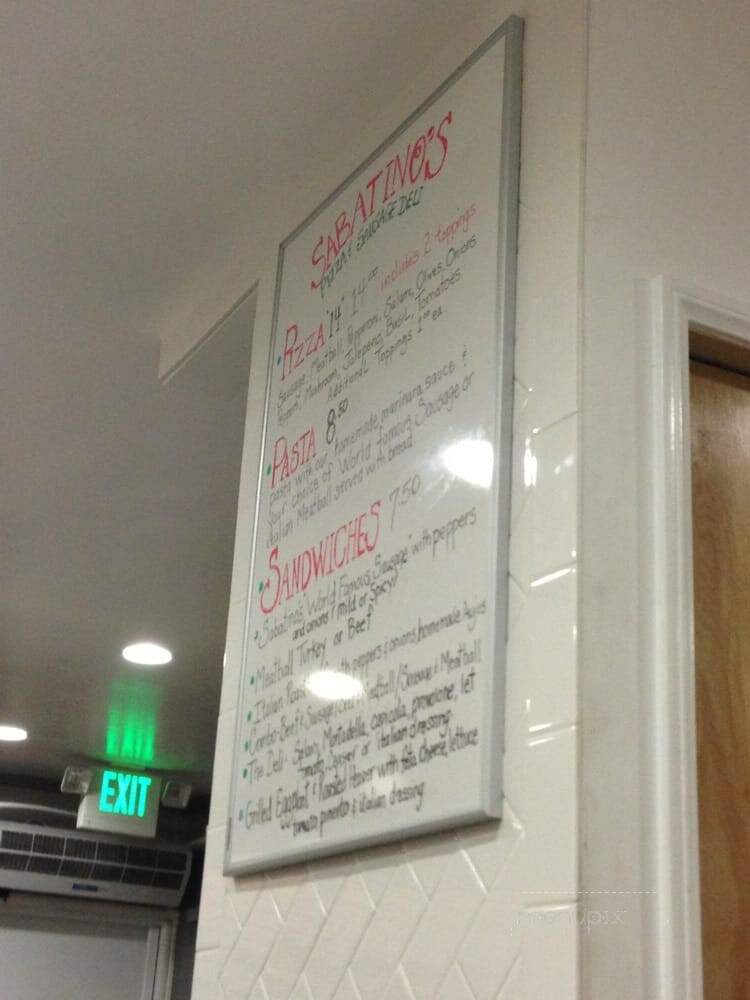 SABATINO'S
PIZZA & SAUSAGE DELI
• PIZZA "14" 14.00 includes 2 toppings
Sausage, Meatball, Pepperoni, Salami, Olives, Onions
Peppers, Mushroom, Jalepeno, Basil, Tomatoes
Additional Toppings 1.00 ea.
• PASTA 8.50
Pasta with our homemade marinara sauce &
your choice of World famous Sausage or
Italian Meatball served with bread
• SANDWICHES 7.50
• Sabatino's World Famous Sausage with peppers
and onions (Mild or Spicy)
• Meatball Turkey or Beef
• Italian Roast with peppers & onions, homemade Aujus
• Combo-Beef & Sausage/Beef & Meatball/Sausage & Meatball
• The Deli - Salami, Mortadella, capicola, provolone, let
tomato, or Italian dressing.
• Grilled Eggplant & Roasted Pepper with feta cheese, lettuce
tomato pimento & italian dressing
EXIT